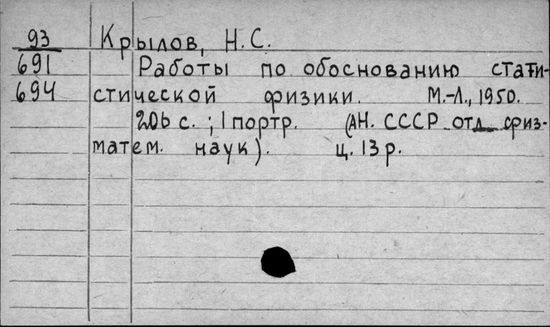 93 Крылов, Н.С.
691 Работы по обоснованию стати-
694 стической физики. М.-Л., 1950.
206 с.; 1 портр. (АН. СССР отд физ-
матем. наук). ц. 13 р.